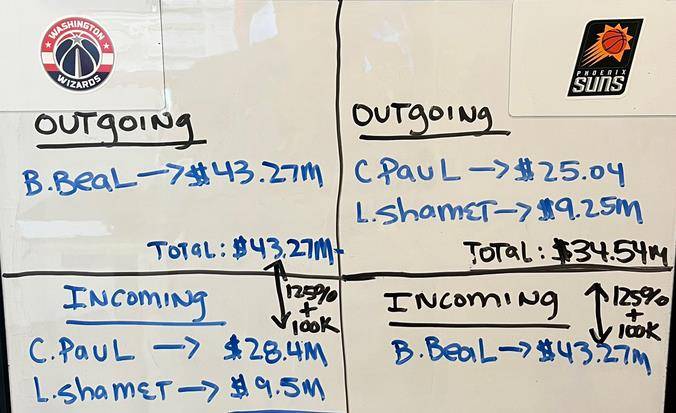 WASHINGTON
WIZARDS
OUTGOING
B.BEAL → $43.27M
TOTAL: $43.27M
125%
+
100K
INCOMING
C.PAUL → $28.4M
L.SHAMET → $9.5M
PHOENIX
SUNS
OUTGOING
C.PAUL → $25.04
L.SHAMET → $9.25M
TOTAL: $34.54M
INCOMING
125%
+
100K
B.BEAL → $43.27M